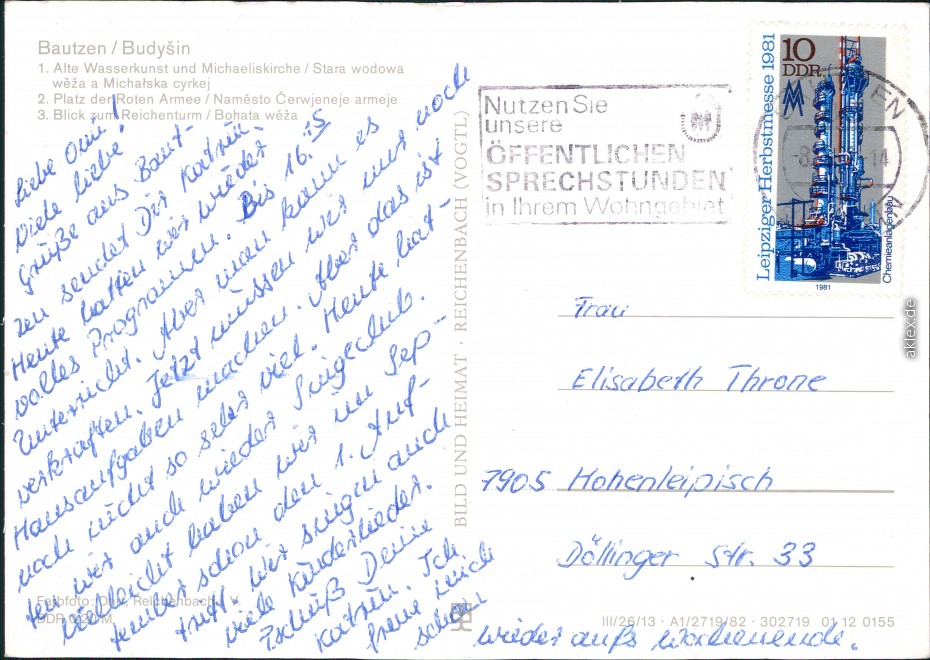 Bautzen / Budyšin
1. Alte Wasserkunst und Michaeliskirche / Stara wodowa
wěža a Michałska cyrkej
2. Platz der Roten Armee / Naměsto Čerwjeneje armeje
3. Blick zum Reichenturm / Bohata wěža
Liebe Omi!
Viele liebe
Grüße aus Baut-
zen sendet Dir Katrin.
Heute hatten wir wieder
volles Programm. Bis 16.15
Unterricht. Aber man kann es
verkraften. Jetzt müssen wir nur noch
Hausaufgaben machen. Aber das ist
noch nicht so sehr viel. Heute hat-
ten wir auch wieder Singeclub.
Vielleicht haben wir im Sep-
tember schon den 1. Auf-
tritt. Wir singen auch
viele Kinderlieder.
Tschüß Deine
Katrin. Ich
freue mich
schon
wieder aufs Wochenende.
BILD UND HEIMAT · REICHENBACH (VOGTL)
Nutzen Sie
unsere
ÖFFENTLICHEN
SPRECHSTUNDEN
in Ihrem Wohngebiet
10
DDR
Leipziger Herbstmesse 1981
Chemieanlagenbau
1981
Frau
Elisabeth Throne
7905 Hohenleipisch
Döllinger Str. 33
aklex.de
Farbfoto: Reichenbach i. V.
III/26/13 · A1/2719/82 · 302719 01 12 0155